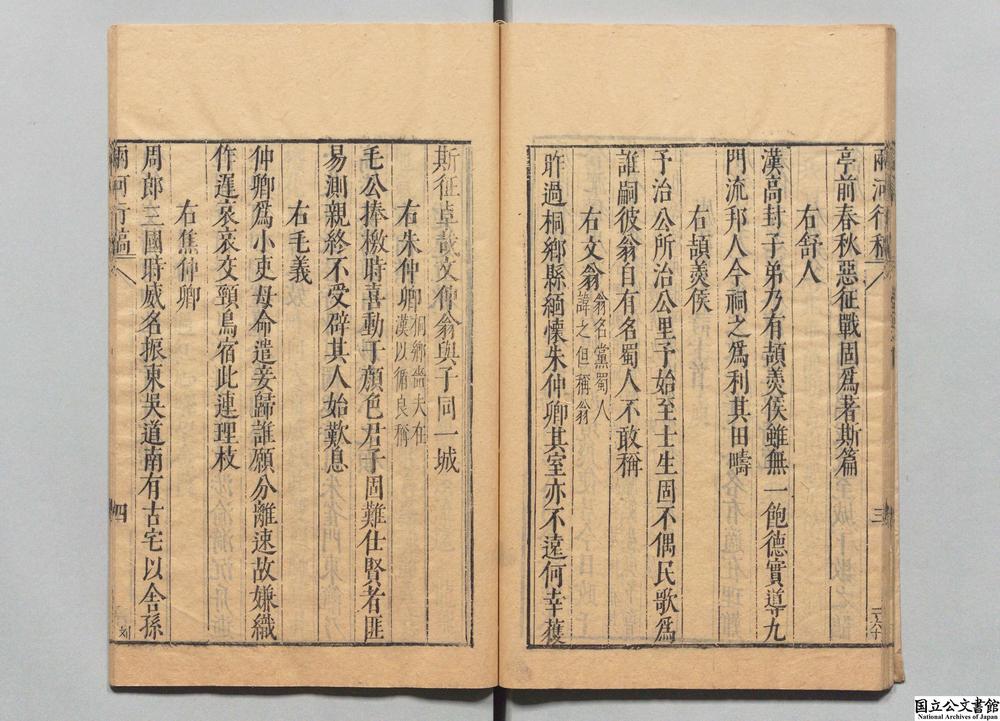 兩河行稿
三
亭前春秋惡征戰固爲著斯篇
右舒人
漢高封子弟乃有頡羹侯雖無一飽德實導九
門流邦人今祠之爲利其田疇
右頡羹侯
予治公所治公里予始至士生固不偶民歌爲
誰嗣彼翁自有名蜀人不敢稱
右文翁翁名黨蜀人
諱之但稱翁
昨過桐鄉縣緬懷朱仲卿其室亦不遠何幸獲
斯征臯哉文仲翁與子同一城
右朱仲卿桐鄉嗇夫在
漢以循良稱
毛公捧檄時喜動于顏色君子固難仕賢者匪
易測親終不受辟其人始歎息
右毛義
仲卿爲小吏母命遣妾歸誰願分離速故嫌織
作遲哀哀交頸鳥宿此連理枝
右焦仲卿
周郎三國時威名振東吳道南有古宅以舍孫
兩河行稿
四
国立公文書館
National Archives of Japan